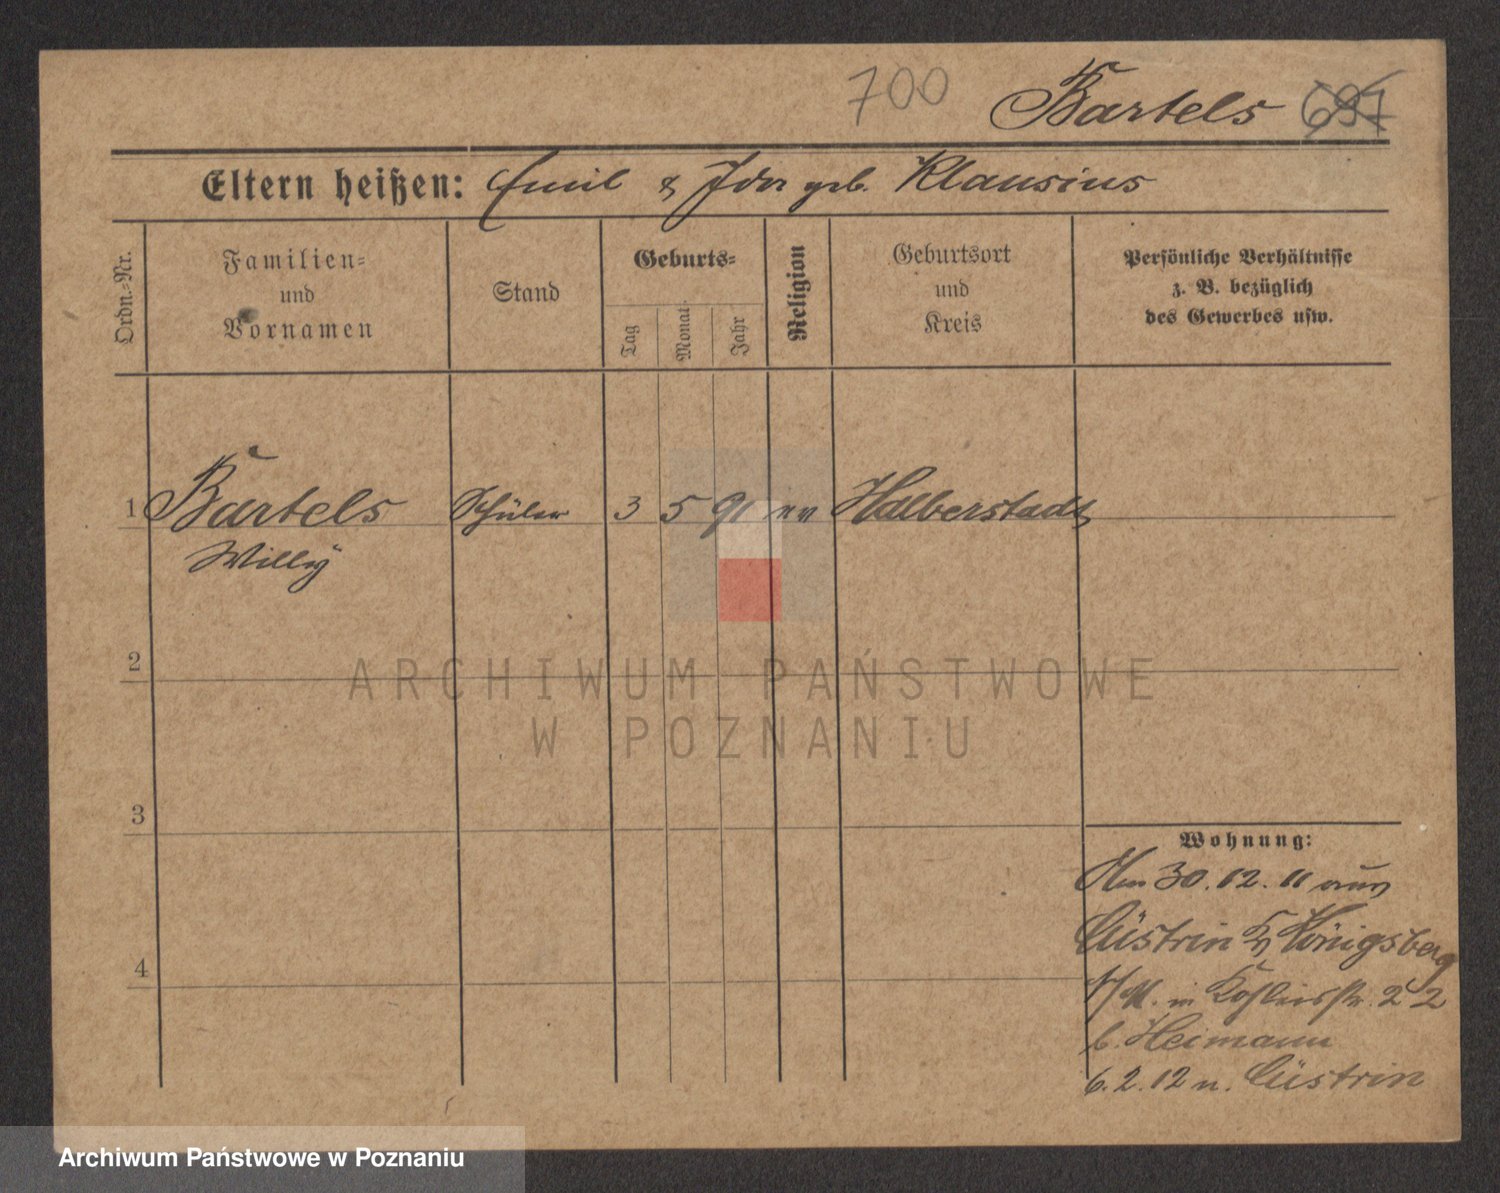 700 Bartels 697
Eltern heißen: Emil & Ida geb. Klausius
Ordn.-Nr.
Familien-
und
Vornamen
Stand
Geburts-
Tag
Monat
Jahr
Religion
Geburtsort
und
Kreis
Persönliche Verhältnisse
z. B. bezüglich
des Gewerbes usw.
1 Bartels Schüler 3 5 91 ev Halberstadt
Willy
2
ARCHIWUM PAŃSTWOWE
W POZNANIU
3
Wohnung:
Am 30.12.11 aus
Cüstrin Kr Königsberg
4
N/M. in 22
b. Heimann
6.2.12 n. Cüstrin
Archiwum Państwowe w Poznaniu